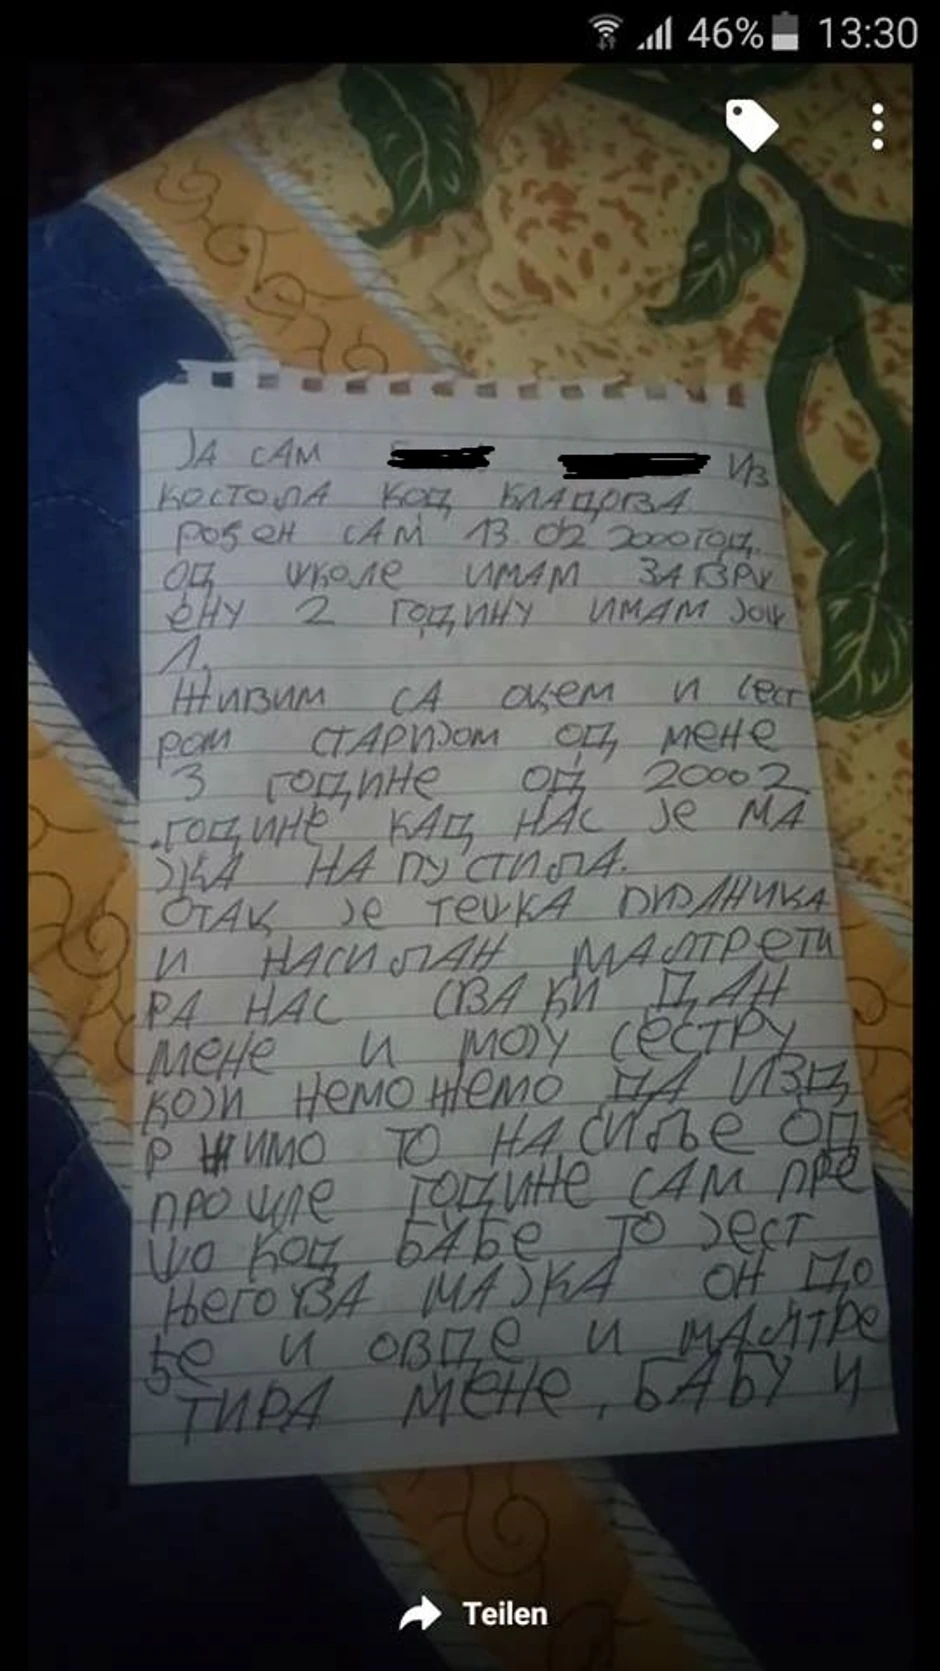 46% 13:30
ЈА САМ ИЗ
КОСТОЛА КОД КЛАДОВА
РОЂЕН САМ 13 02 2000 ГОД.
ОД ШКОЛЕ ИМАМ ЗАВРШ
ЕНУ 2 ГОДИНУ ИМАМ ЈОШ
1.
ЖИВИМ СА ОЦЕМ И СЕСТ
РОМ СТАРИЈОМ ОД МЕНЕ
3 ГОДИНЕ ОД 20002
ГОДИНЕ КАД НАС ЈЕ МА
ЈКА НАПУСТИЛА.
ОТАЦ ЈЕ ТЕШКА ПИЈАНИКА
И НАСИЛАН МАЛТРЕТИ
РА НАС СВАКИ ДАН
МЕНЕ И МОЈУ СЕСТРУ
КОЈИ НЕМОЖЕМО ДА ИЗД
РЖИМО ТО НАСИЉЕ ОД
ПРОШЛЕ ГОДИНЕ САМ ПРЕ
ШО КОД БАБЕ ТО ЈЕСТ
ЊЕГОВА МАЈКА ОН ДО
ЂЕ И ОВДЕ И МАЛТРЕ
ТИРА МЕНЕ, БАБУ И
Teilen